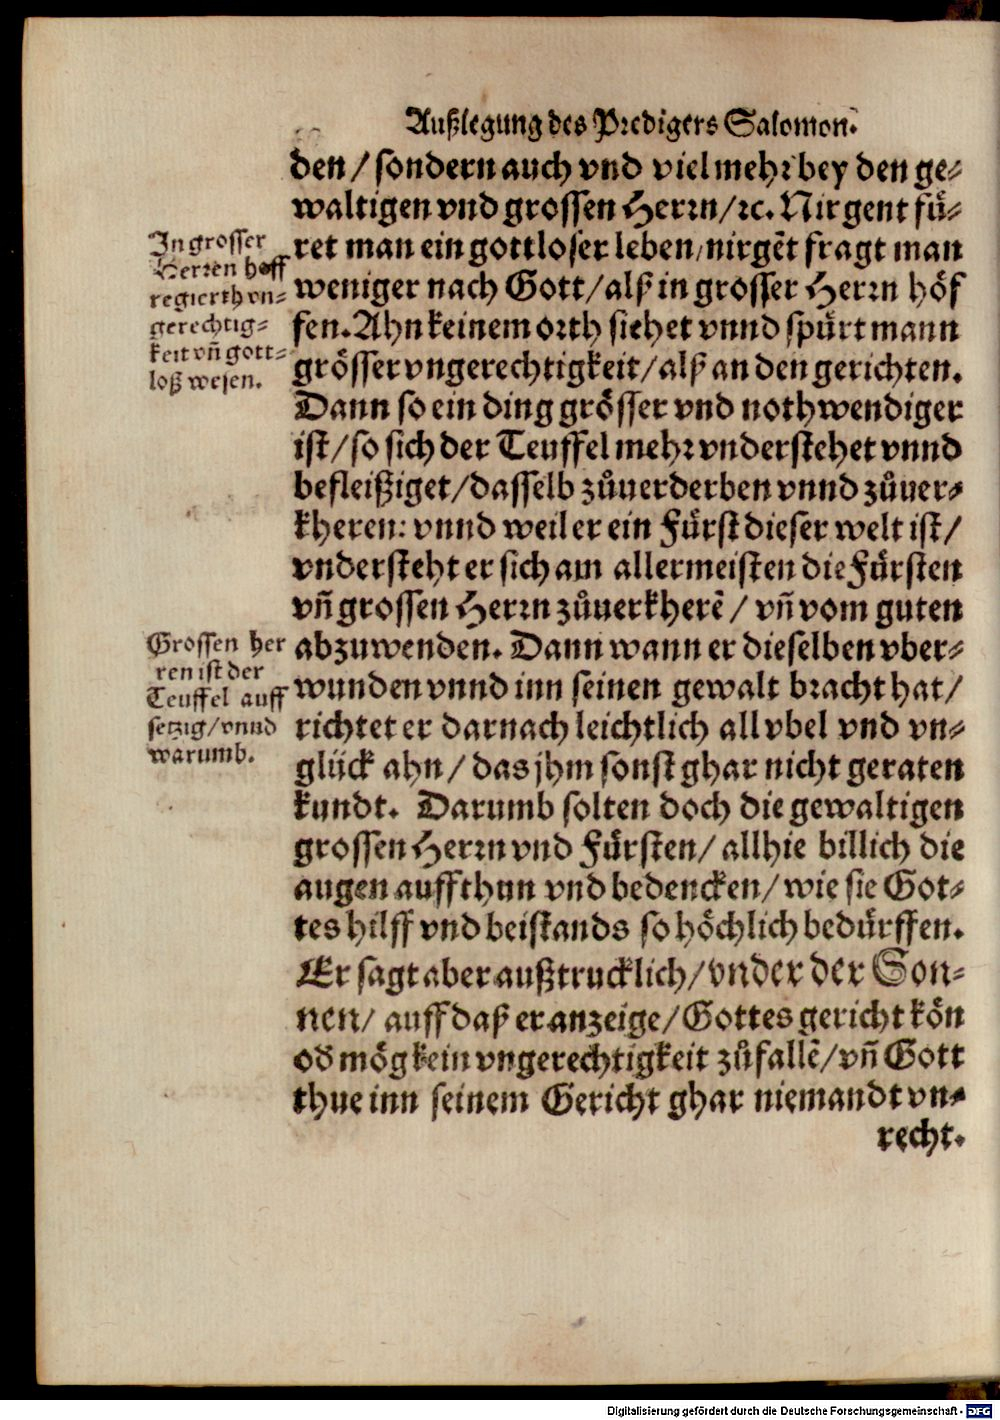 Außlegung des Predigers Salomon.
den / sondern auch vnd viel mehr bey den ge-
waltigen vnd grossen Herrn / ꝛc. Nirgent fuͤ-
ret man ein gottloser leben / nirgẽt fragt man
weniger nach Gott / alß in grosser Herrn hoͤf
fen. Ahn keinem orth siehet vnnd spuͤrt mann
groͤsser vngerechtigkeit / alß an den gerichten.
Dann so ein ding groͤsser vnd nothwendiger
ist / so sich der Teuffel mehr vnderstehet vnnd
befleißiget / dasselb zůuerderben vnnd zůuer-
kheren: vnnd weil er ein Fuͤrst dieser welt ist /
vndersteht er sich am allermeisten die Fuͤrsten
vñ grossen Herrn zůuerkherẽ / vñ vom guten
abzuwenden. Dann wann er dieselben vber-
wunden vnnd inn seinen gewalt bracht hat /
richtet er darnach leichtlich all vbel vnd vn-
gluͤck ahn / das jhm sonst ghar nicht geraten
kundt. Darumb solten doch die gewaltigen
grossen Herrn vnd Fuͤrsten / allhie billich die
augen auffthun vnd bedencken / wie sie Got-
tes hilff vnd beistands so hoͤchlich beduͤrffen.
Er sagt aber außtrucklich / vnder der Son-
nen / auff daß er anzeige / Gottes gericht koͤn
oď moͤg kein vngerechtigkeit zůfallẽ / vñ Gott
thue inn seinem Gericht ghar niemandt vn-
recht.
In grosser
Herren hoff
regierth vn-
gerechtig-
keit vñ gott-
loß wesen.
Grossen her
ren ist der
Teuffel auff
setzig / vnnd
warumb.
Digitalisierung gefördert durch die Deutsche Forschungsgemeinschaft - DFG